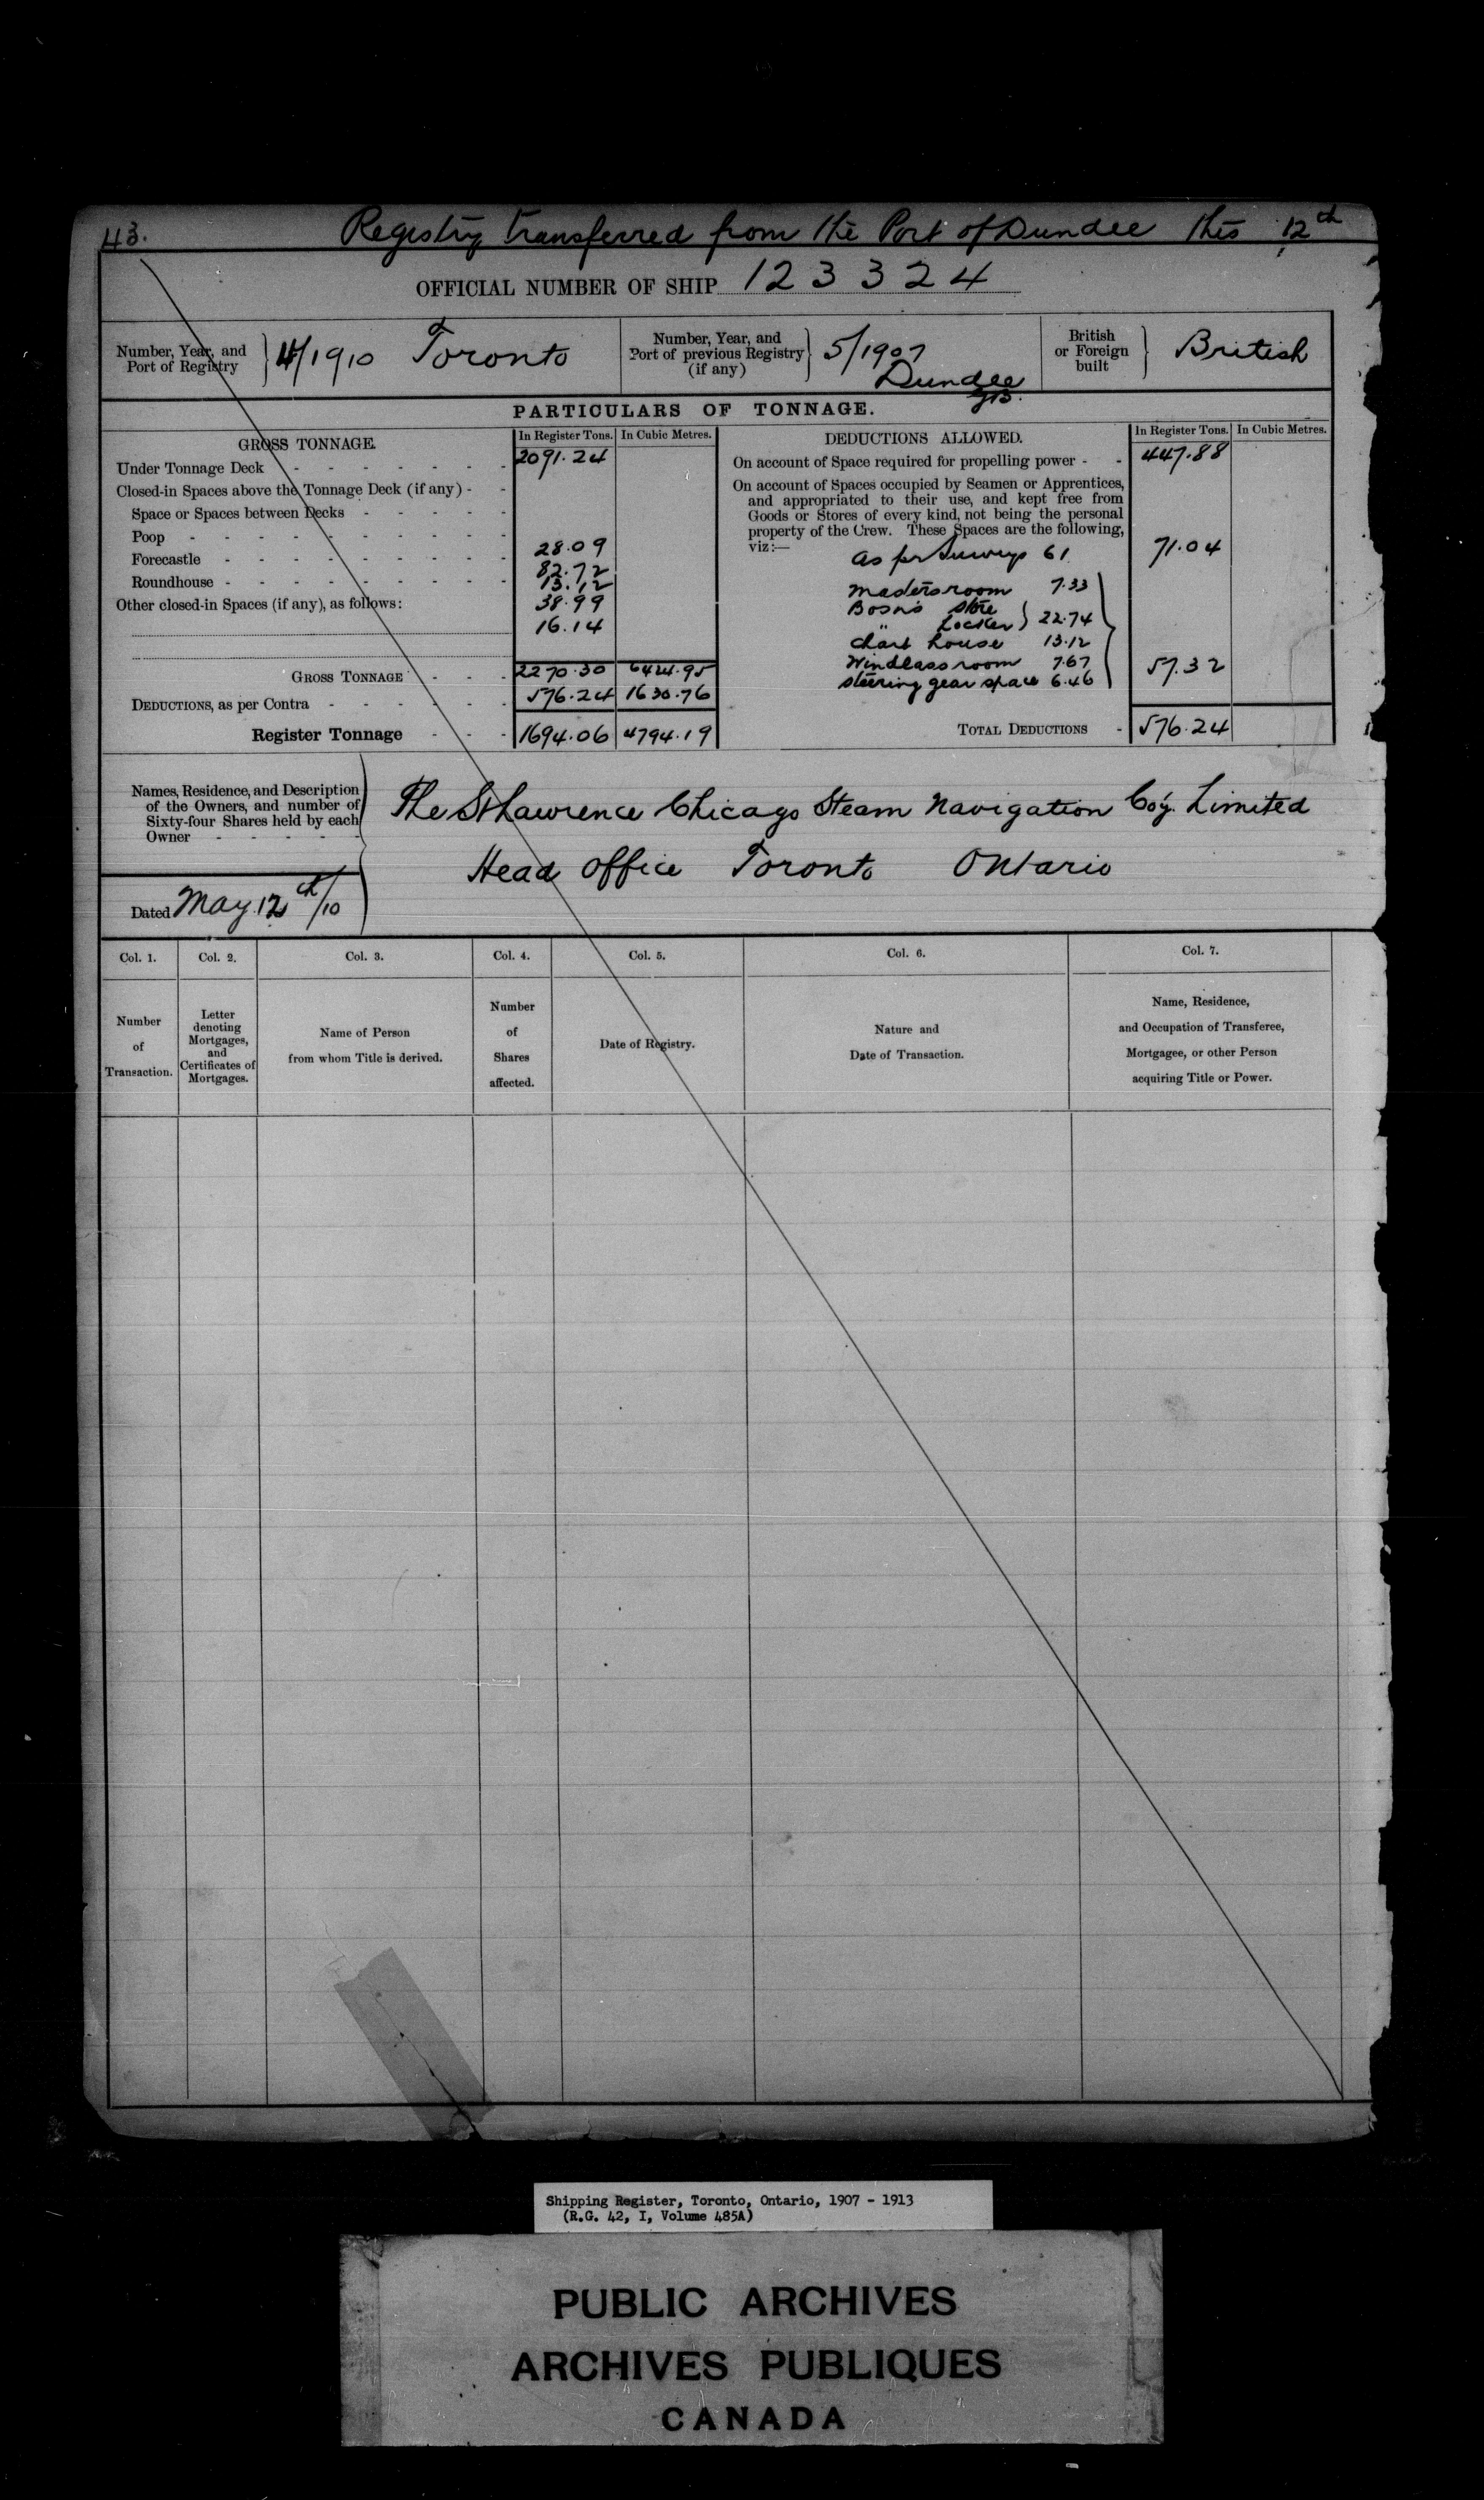 43. Registry transferred from the Port of Dundee this 12th
OFFICIAL NUMBER OF SHIP 123324
Number, Year, and
Port of Registry
4/1910 Toronto
Number, Year, and
Port of previous Registry
(if any)
5/1907
Dundee
British
or Foreign
built
British
PARTICULARS OF TONNAGE.
GROSS TONNAGE.
In Register Tons.
In Cubic Metres.
Under Tonnage Deck 2091.24
Closed-in Spaces above the Tonnage Deck (if any)
Space or Spaces between Decks
Poop 28.09
Forecastle 82.72
Roundhouse 13.12
Other closed-in Spaces (if any), as follows: 38.99
16.14
GROSS TONNAGE 2270.30 6424.95
DEDUCTIONS, as per Contra 576.24 1630.76
Register Tonnage 1694.06 4794.19
DEDUCTIONS ALLOWED.
In Register Tons.
In Cubic Metres.
On account of Space required for propelling power - - 447.88
On account of Spaces occupied by Seamen or Apprentices,
and appropriated to their use, and kept free from
Goods or Stores of every kind, not being the personal
property of the Crew. These Spaces are the following,
viz:—
as pr Surveys 61 71.04
masters room 7.33
Bosn's store
" Locker } 22.74
chart house 13.12
Windlass room 7.67 57.32
steering gear space 6.46
TOTAL DEDUCTIONS - 576.24
Names, Residence, and Description
of the Owners, and number of
Sixty-four Shares held by each
Owner
The St Lawrence Chicago Steam Navigation Coy. Limited
Head Office Toronto Ontario
Dated May 12th/10
Col. 1.
Col. 2.
Col. 3.
Col. 4.
Col. 5.
Col. 6.
Col. 7.
Number
of
Transaction.
Letter
denoting
Mortgages,
and
Certificates of
Mortgages.
Name of Person
from whom Title is derived.
Number
of
Shares
affected.
Date of Registry.
Nature and
Date of Transaction.
Name, Residence,
and Occupation of Transferee,
Mortgagee, or other Person
acquiring Title or Power.
Shipping Register, Toronto, Ontario, 1907 - 1913
(R.G. 42, I, Volume 485A)
PUBLIC ARCHIVES
ARCHIVES PUBLIQUES
CANADA